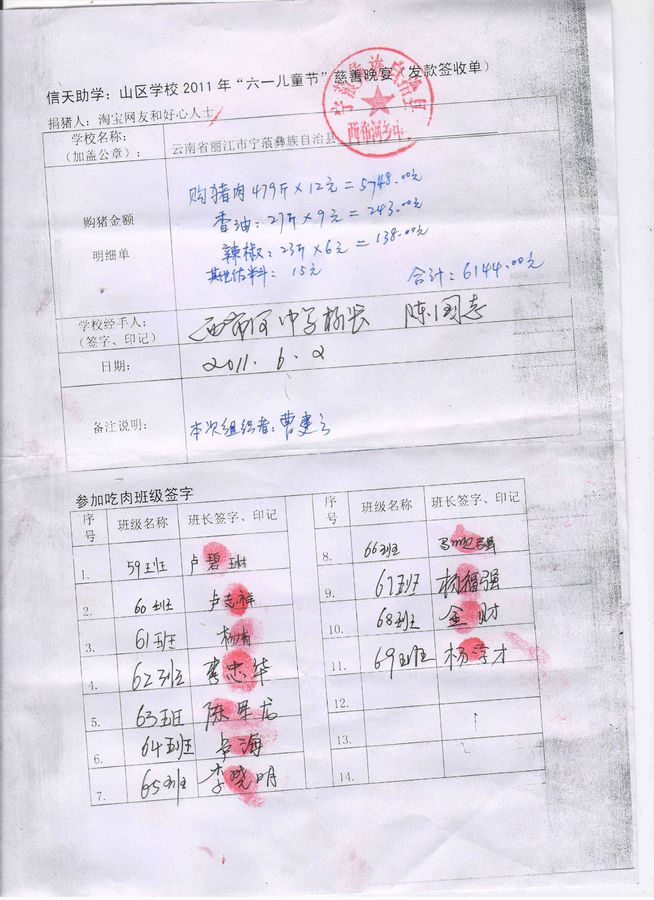 信天助学：山区学校 2011 年“六一儿童节”慈善晚宴（发款签收单）
捐猪人：淘宝网友和好心人士
学校名称：
（加盖公章）：
云南省丽江市宁蒗彝族自治县
宁蒗彝族自治县
西布河乡中
购猪金额
明细单
购猪肉479斤×12元=5748.00元
香油：27斤×9元=243.00元
辣椒：23斤×6元=138.00元
其他佐料：15元
合计：6144.00元
学校经手人：
（签字、印记）
西布河中学校长 陈国志
日期：
2011.6.2
备注说明：
本次组织者：曹建云
参加吃肉班级签字
序号 班级名称 班长签字、印记
1. 59班 卢碧琳
2. 60班 卢志祥
3. 61班 杨
4. 62班 李忠华
5. 63班 陈
6. 64班 卢海
7. 65班 李晓明
序号 班级名称 班长签字、印记
8. 66班 马 强
9. 67班 杨福强
10. 68班 金财
11. 69班 杨学才
12.
13.
14.